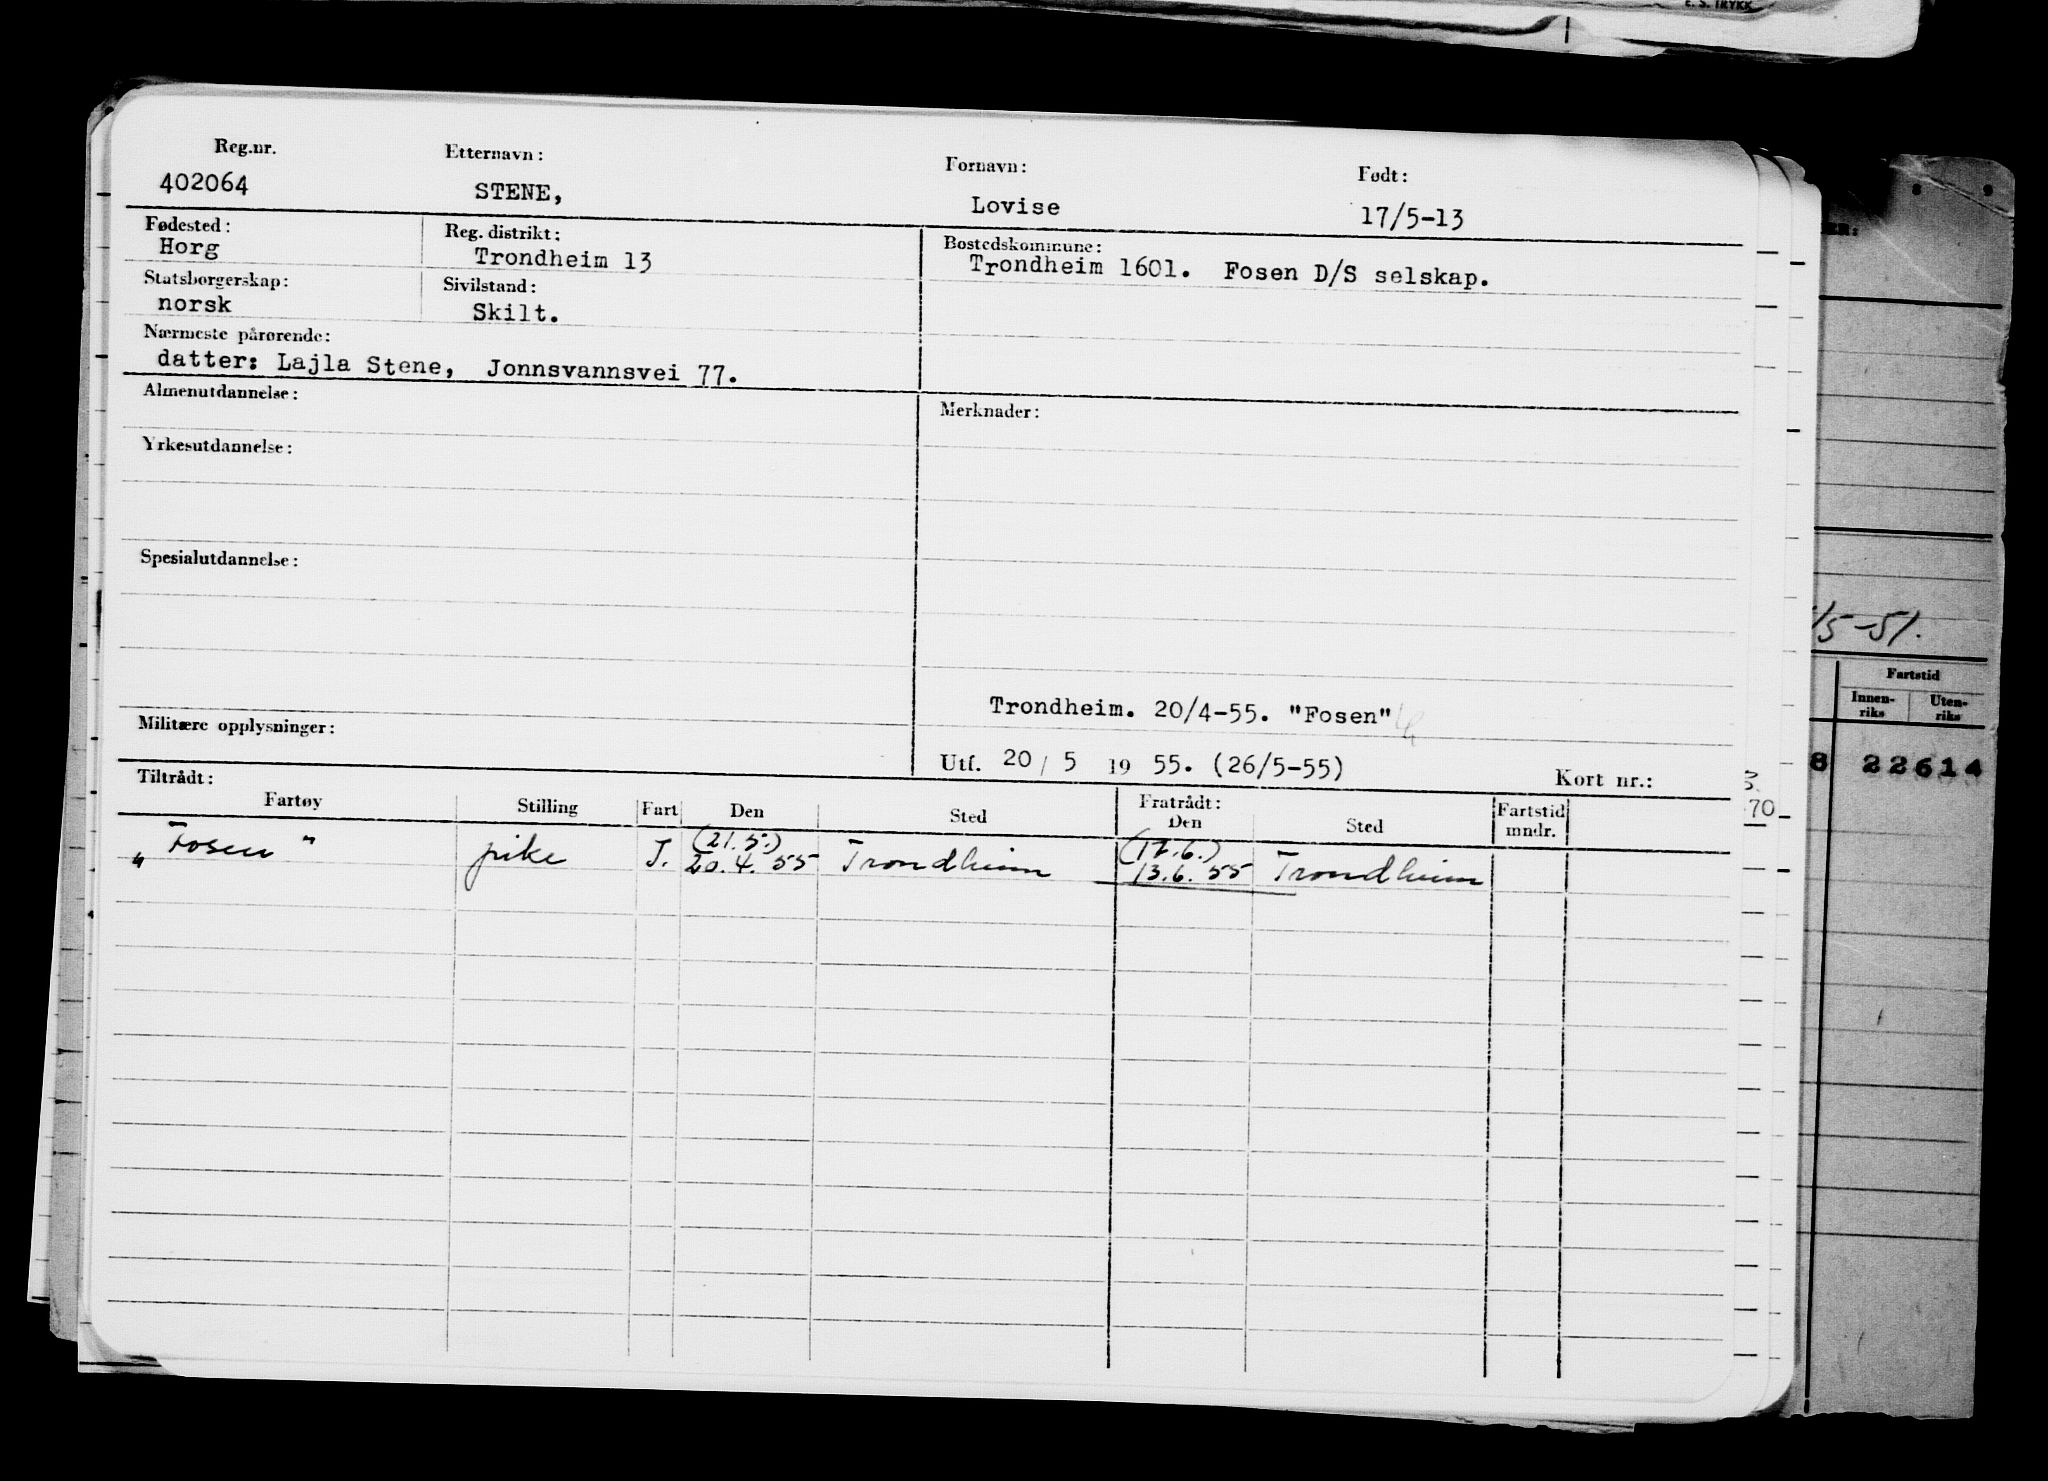 E. S. TRYKK
Reg.nr. Etternavn: Fornavn: Født:
402064 STENE, Lovise 17/5-13
Fødested: Reg. distrikt: Bostedskommune:
Horg Trondheim 13 Trondheim 1601. Fosen D/S selskap.
Statsborgerskap: Sivilstand:
norsk Skilt.
Nærmeste pårørende:
datter: Lajla Stene, Jonnsvannsvei 77.
Almenutdannelse: Merknader:
Yrkesutdannelse:
Spesialutdannelse:
/5-51.
Fartstid
Innen-riks Uten-riks
Trondheim. 20/4-55. "Fosen"
Militære opplysninger:
Utf. 20/ 5 19 55. (26/5-55) Kort nr.:
8 22614
3.
70
Tiltrådt: Fratrådt:
Fartøy Stilling Fart Den Sted Den Sted Fartstid mndr.
(21.5.) (12.6.)
"Fosen" pike I. 20.4.55 Trondheim 13.6.55 Trondheim